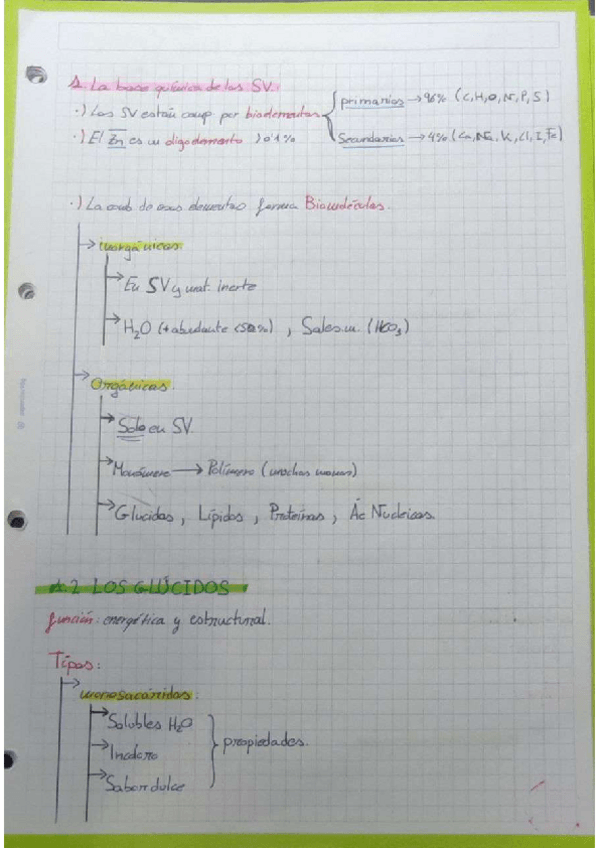 1. La base química de los SV.
·) Los SV están comp por bioelementos
primarios → 96% (C, H, O, N, P, S)
Secundarios → 4% (Ca, Na, K, Cl, I, Fe)
·) El Zn es un oligoelemento 0'1%
·) La comb de esos elementos forma Biomoléculas.
→ inorgánicas
→ En SV y mat. inerte
→ H₂O (+ abundante, Sales m. (HCO₃)
→ Orgánicas.
→ Solo en SV
→ Monómero → Polímero (muchos monos)
→ Glucidos, Lípidos, Proteínas, Ác Nucleicos.
A.2 LOS GLÚCIDOS
función: energética y estructural.
Tipos:
→ monosacáridos:
→ Solubles H₂O
→ Incoloro
→ Sabor dulce
propiedades.